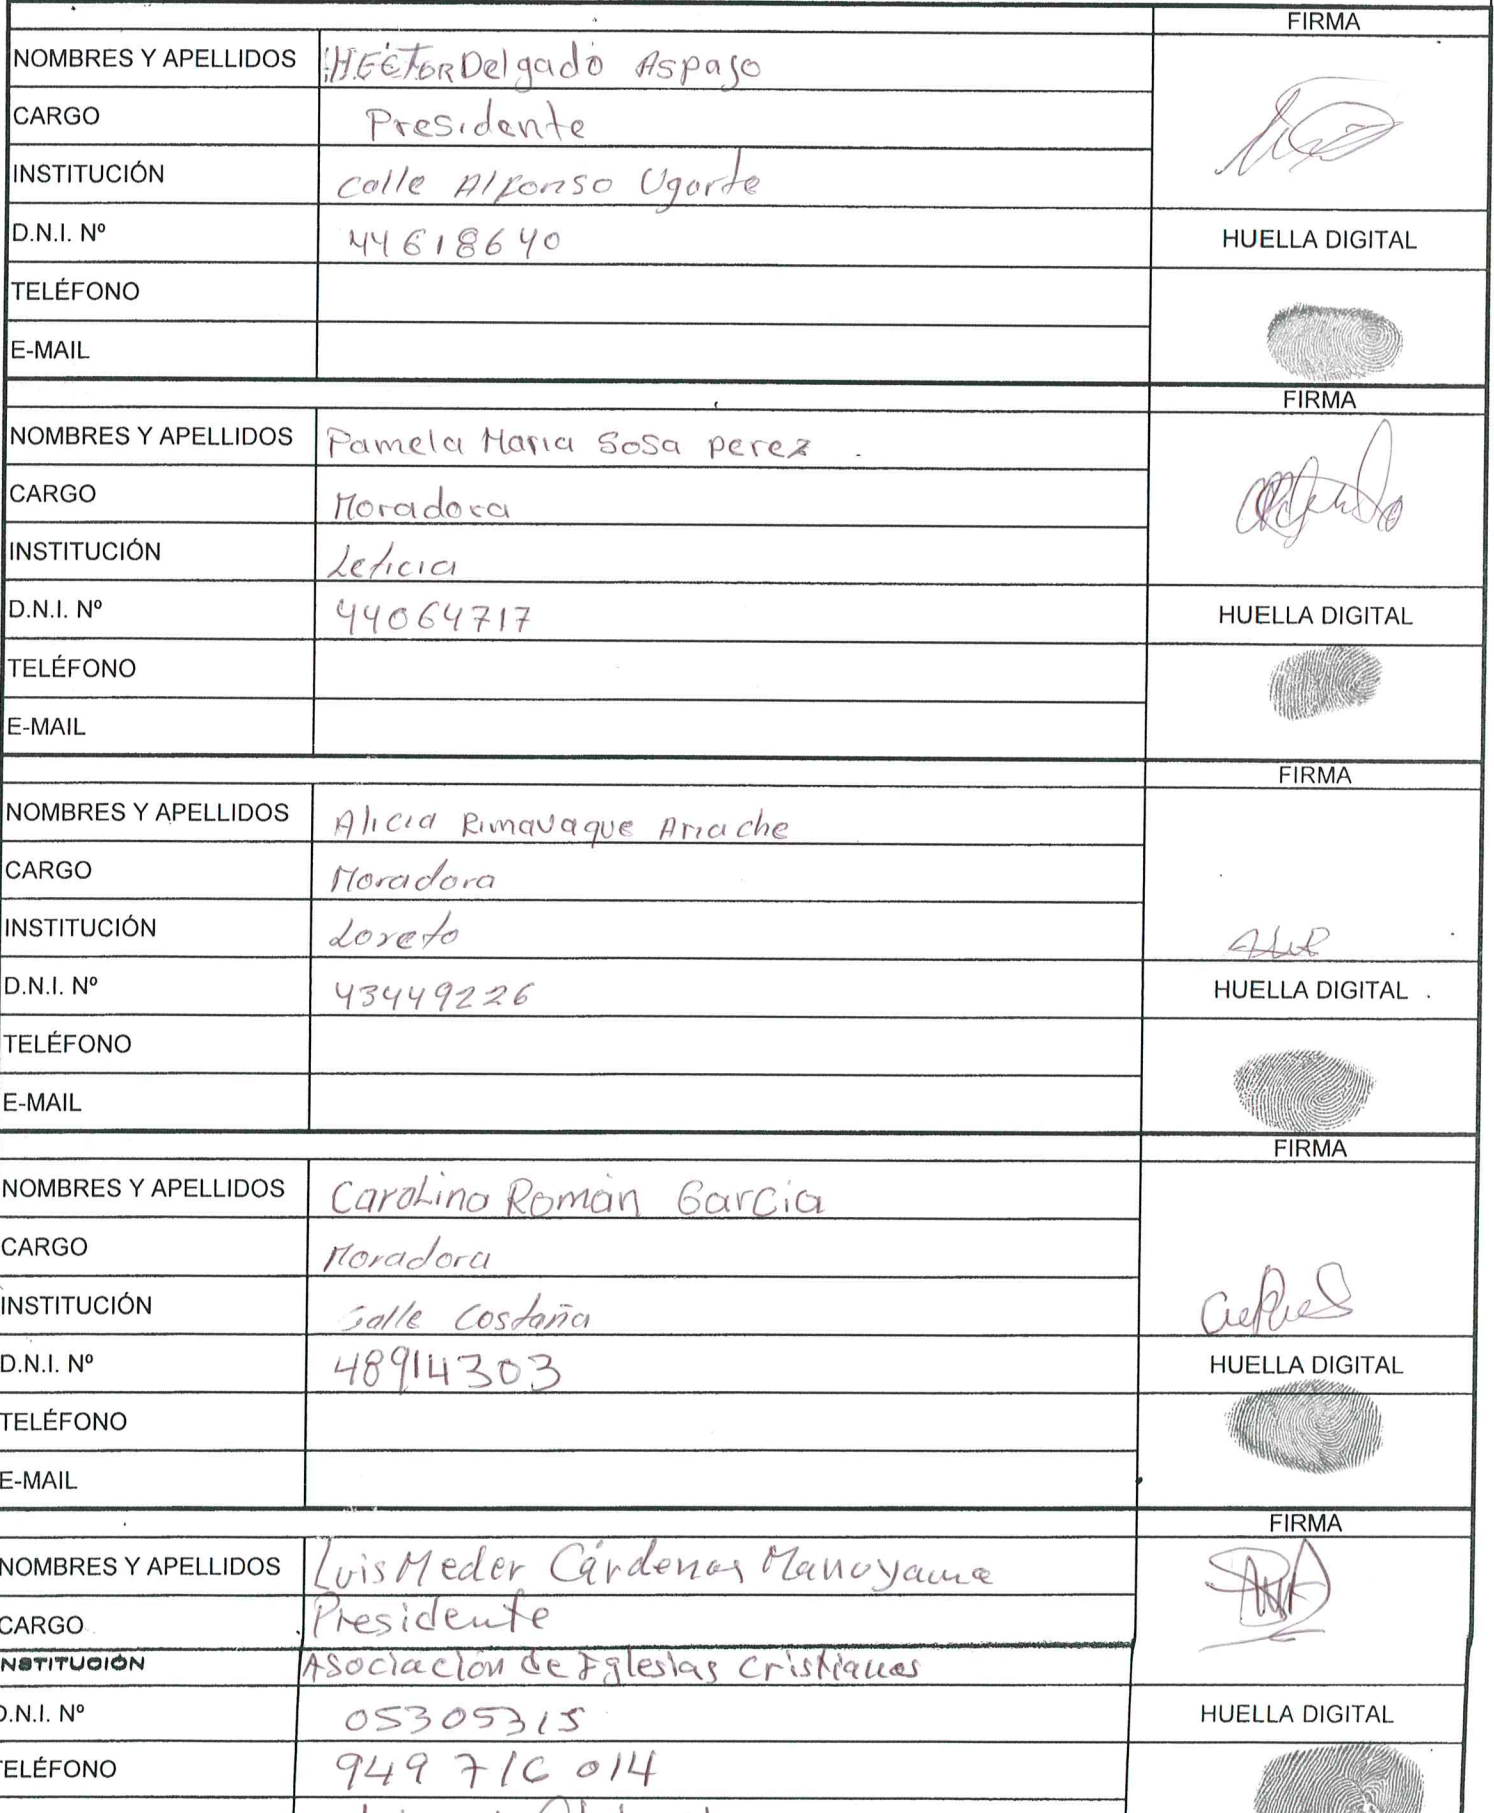 FIRMA
NOMBRES Y APELLIDOS HÉCTOR Delgado Aspajo
CARGO Presidente
INSTITUCIÓN Calle Alfonso Ugarte
D.N.I. Nº 44618640 HUELLA DIGITAL
TELÉFONO
E-MAIL
FIRMA
NOMBRES Y APELLIDOS Pamela Maria Sosa perez
CARGO Moradora
INSTITUCIÓN Leticia
D.N.I. Nº 44064717 HUELLA DIGITAL
TELÉFONO
E-MAIL
FIRMA
NOMBRES Y APELLIDOS Alicia Ariache
CARGO Moradora
INSTITUCIÓN Loreto
D.N.I. Nº 43449226 HUELLA DIGITAL
TELÉFONO
E-MAIL
FIRMA
NOMBRES Y APELLIDOS Carolina Román Garcia
CARGO Moradora
INSTITUCIÓN Calle Costaña
D.N.I. Nº 48914303 HUELLA DIGITAL
TELÉFONO
E-MAIL
FIRMA
NOMBRES Y APELLIDOS Luis Meder Cárdenas Manuyama
CARGO Presidente
NSTITUCIÓN Asociación de Iglesias Cristianas
D.N.I. Nº 05305315 HUELLA DIGITAL
TELÉFONO 949 716 014